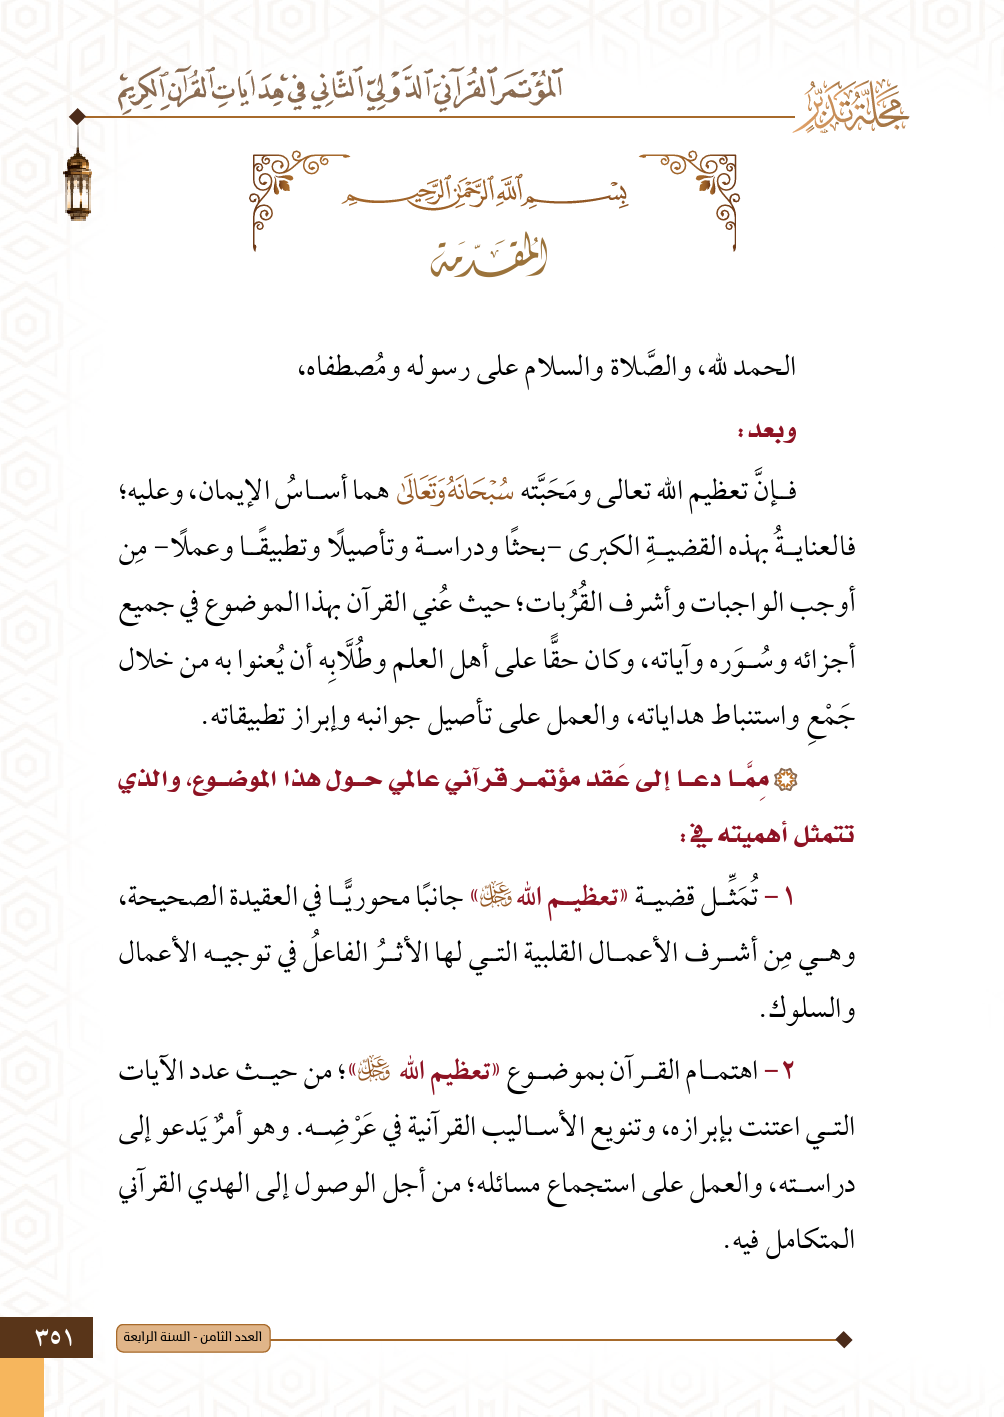 المؤتمر القرآني الدولي الثاني في هدايات القرآن الكريم
مجلة تدبر
بسم الله الرحمن الرحيم
المقدمة
الحمد لله، والصَّلاة والسلام على رسوله ومُصطفاه،
وبعد:
فإنَّ تعظيم الله تعالى ومَحَبَّته سُبْحَانَهُ وَتَعَالَىٰ هما أساسُ الإيمان، وعليه؛
فالعنايةُ بهذه القضيةِ الكبرى -بحثًا ودراسة وتأصيلًا وتطبيقًا وعملًا- مِن
أوجب الواجبات وأشرف القُرُبات؛ حيث عُني القرآن بهذا الموضوع في جميع
أجزائه وسُوَره وآياته، وكان حقًّا على أهل العلم وطُلَّابِه أن يُعنوا به من خلال
جَمْعِ واستنباط هداياته، والعمل على تأصيل جوانبه وإبراز تطبيقاته.
مِمَّا دعا إلى عَقد مؤتمر قرآني عالمي حول هذا الموضوع، والذي
تتمثل أهميته في:
١- تُمَثِّل قضية «تعظيم الله عَزَّوَجَلَّ» جانبًا محوريًّا في العقيدة الصحيحة،
وهي مِن أشرف الأعمال القلبية التي لها الأثرُ الفاعلُ في توجيه الأعمال
والسلوك.
٢- اهتمام القرآن بموضوع «تعظيم الله عَزَّوَجَلَّ»؛ من حيث عدد الآيات
التي اعتنت بإبرازه، وتنويع الأساليب القرآنية في عَرْضِه. وهو أمرٌ يَدعو إلى
دراسته، والعمل على استجماع مسائله؛ من أجل الوصول إلى الهدي القرآني
المتكامل فيه.
العدد الثامن - السنة الرابعة
٣٥١